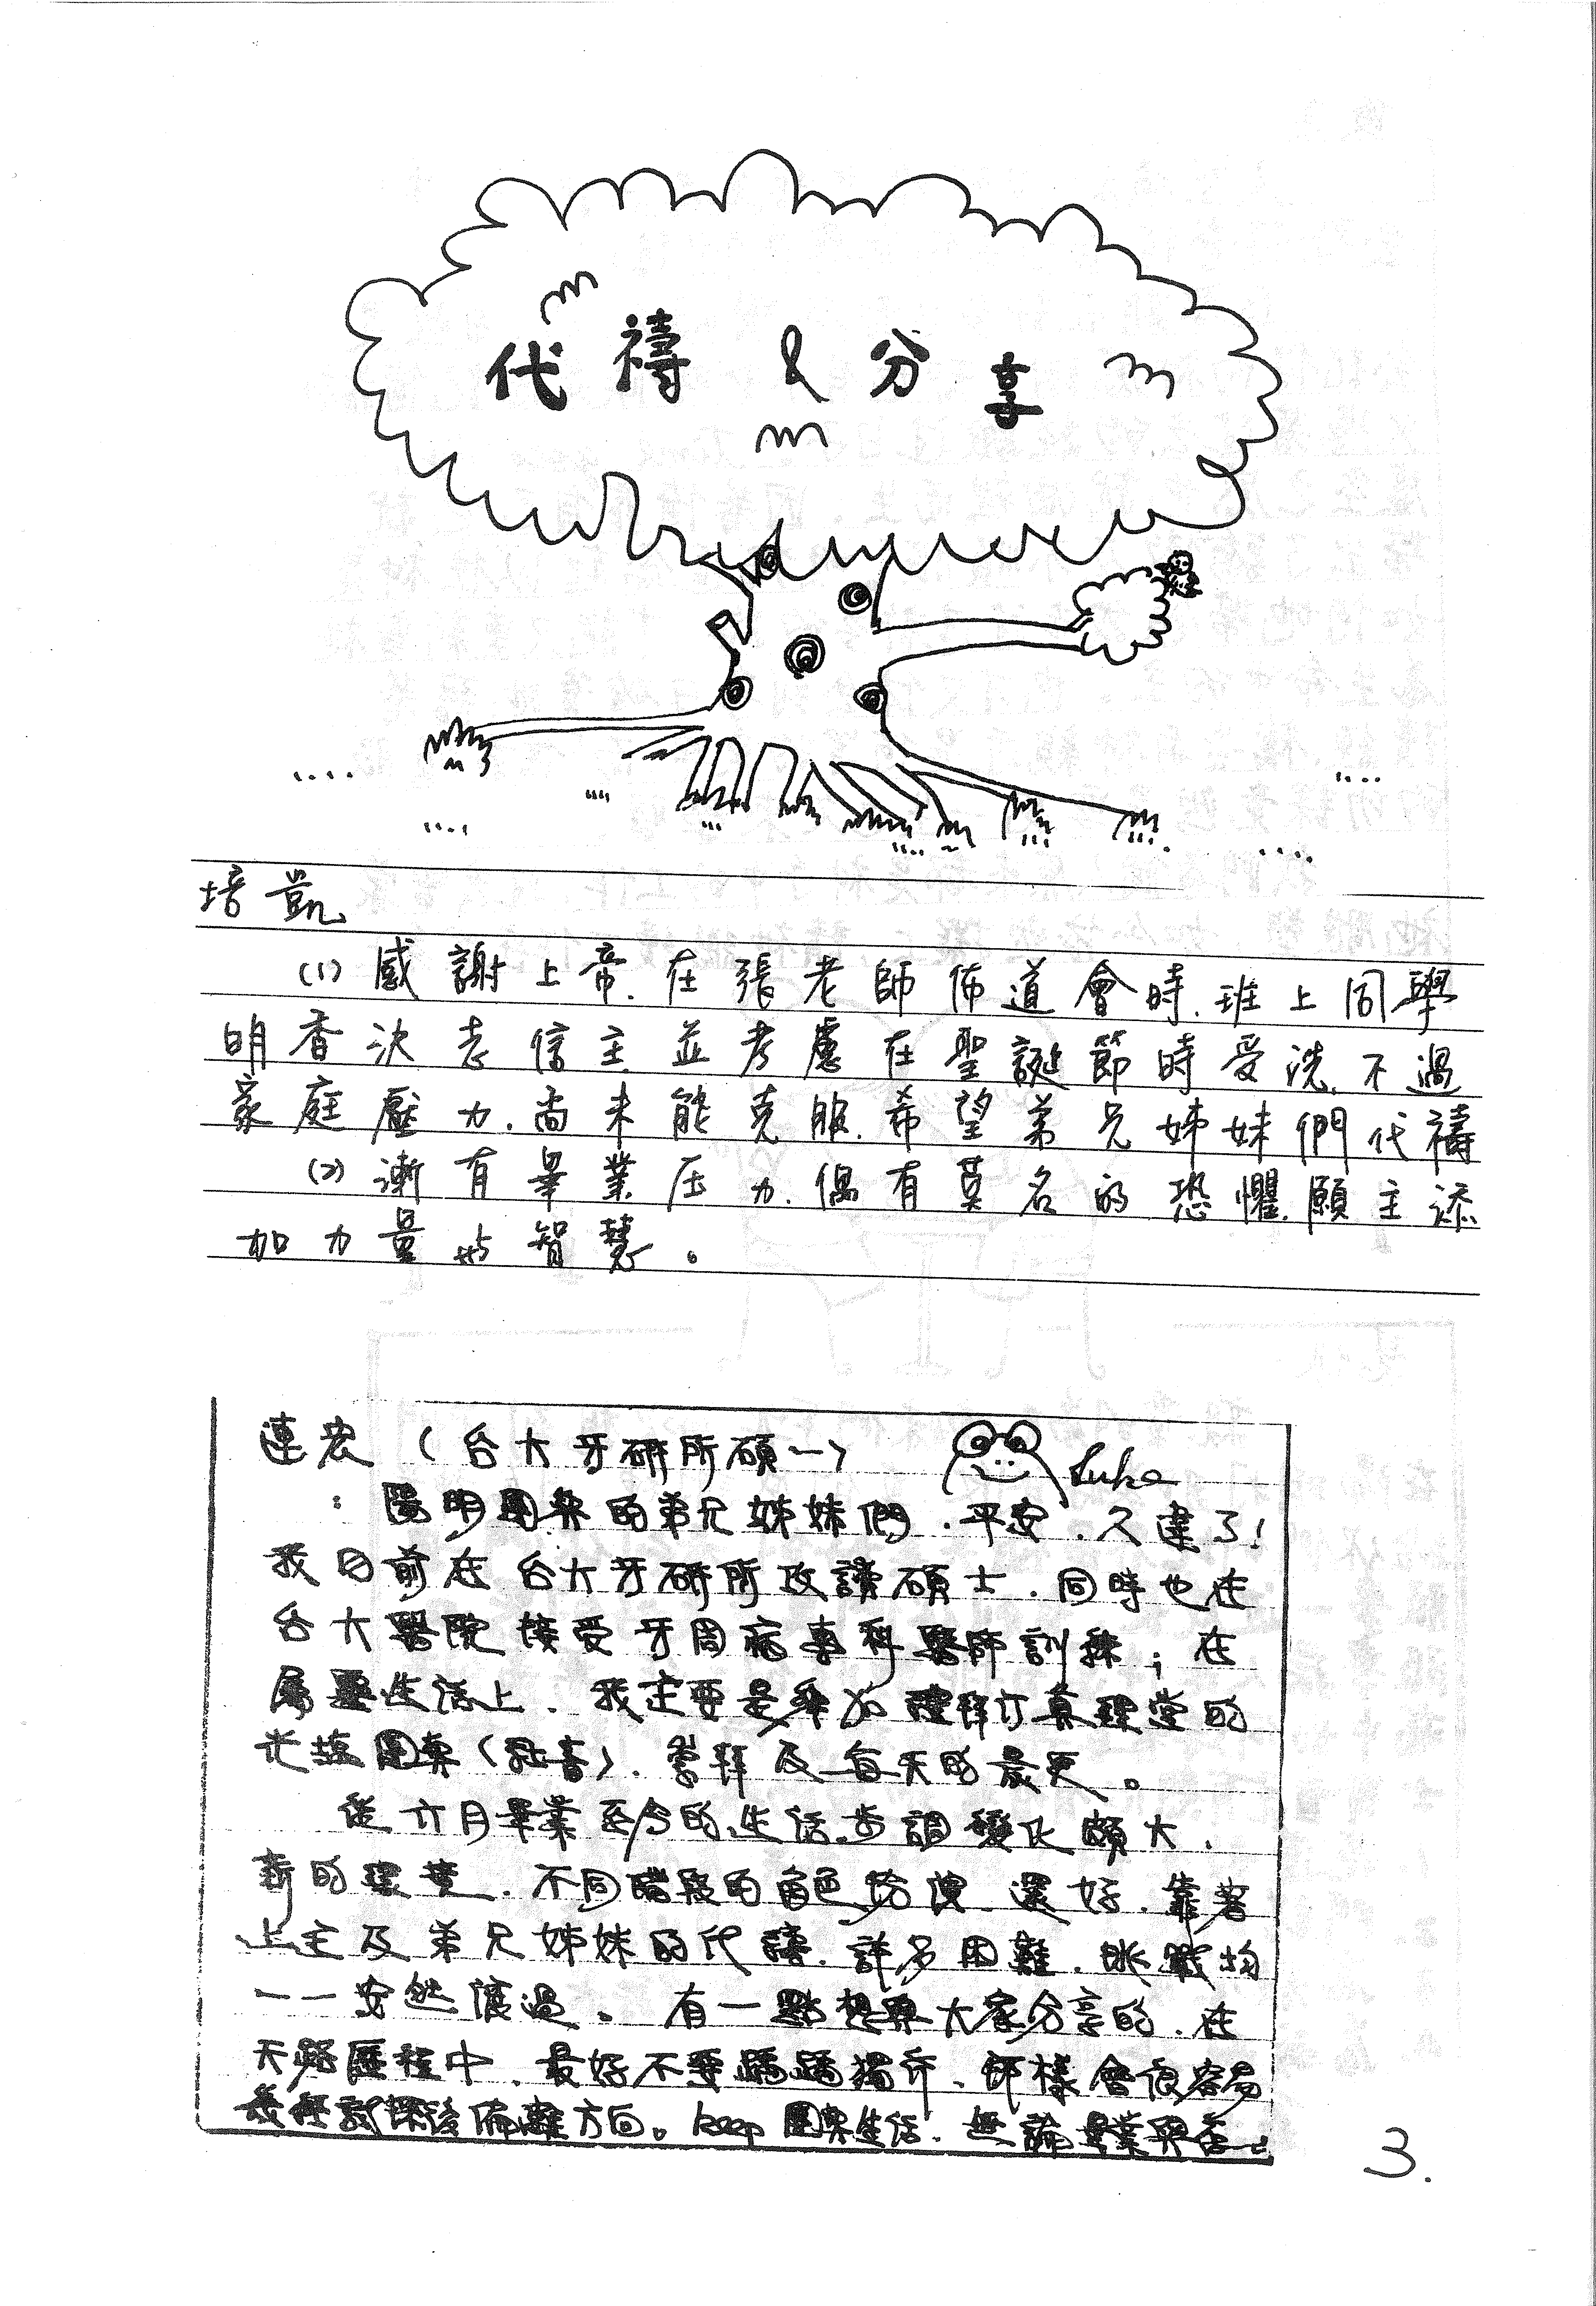 代禱 & 分享
培凱
(1) 感謝上帝.在張老師佈道會時.班上同學
明香決志信主.並考慮在聖誕節時受洗.不過
家庭壓力.尚未能克服.希望弟兄姊妹們代禱
(2) 漸有畢業压力.偶有莫名的恐懼.願主添
加力量与智慧。
連宏（台大牙研所碩一） Luke
：陽明團契的弟兄姊妹們.平安.久違了!
我目前在台大牙研所攻讀碩士.同時也在
台大醫院接受牙周病專科醫師訓練；在
屬靈生活上.我主要是參加 真理堂的
光鹽團契（社青）.崇拜及每天的晨更。
從六月畢業至今的生活步調變化頗大.
新的環境.不同階段的角色扮演.還好.靠著
上主及弟兄姊妹的代禱.許多困難.挑戰均
一一安然度過。有一點想與大家分享的.在
天路歷程中.最好不要踽踽獨行.那樣會很容易
偏離方向。keep 團契生活.無論畢業與否
3.